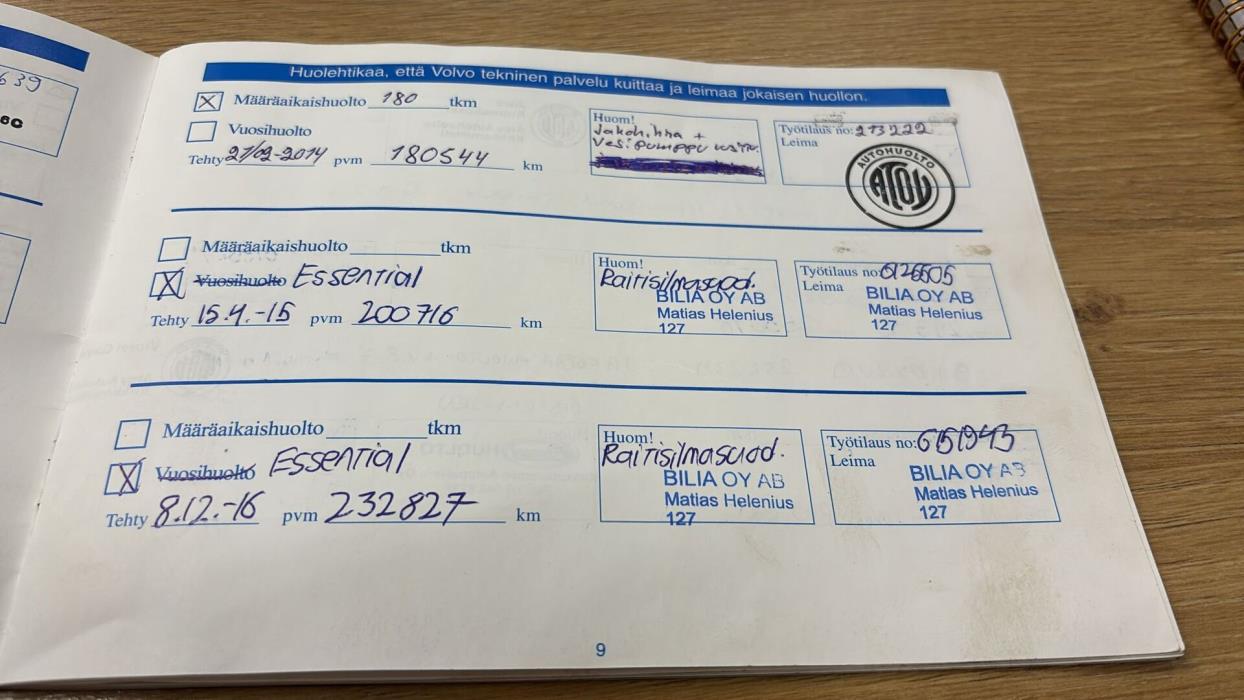 639
6C
Huolehtikaa, että Volvo tekninen palvelu kuittaa ja leimaa jokaisen huollon.
Määräaikaishuolto 180 tkm
Vuosihuolto
Tehty 21/02-2014 pvm 180544 km
Huom!
Jakohihna +
Vesipumppu
Työtilaus no: 213222
Leima
AUTOHUOLTO
ATOY
Määräaikaishuolto tkm
Vuosihuolto Essential
Tehty 15.4.-15 pvm 200716 km
Huom!
Raitisilmasuod.
BILIA OY AB
Matias Helenius
127
Työtilaus no: 6126505
Leima
BILIA OY AB
Matias Helenius
127
Määräaikaishuolto tkm
Vuosihuolto Essential
Tehty 8.12.-16 pvm 232827 km
Huom!
Raitisilmasuod.
BILIA OY AB
Matias Helenius
127
Työtilaus no: 6151943
Leima
BILIA OY AB
Matias Helenius
127
9